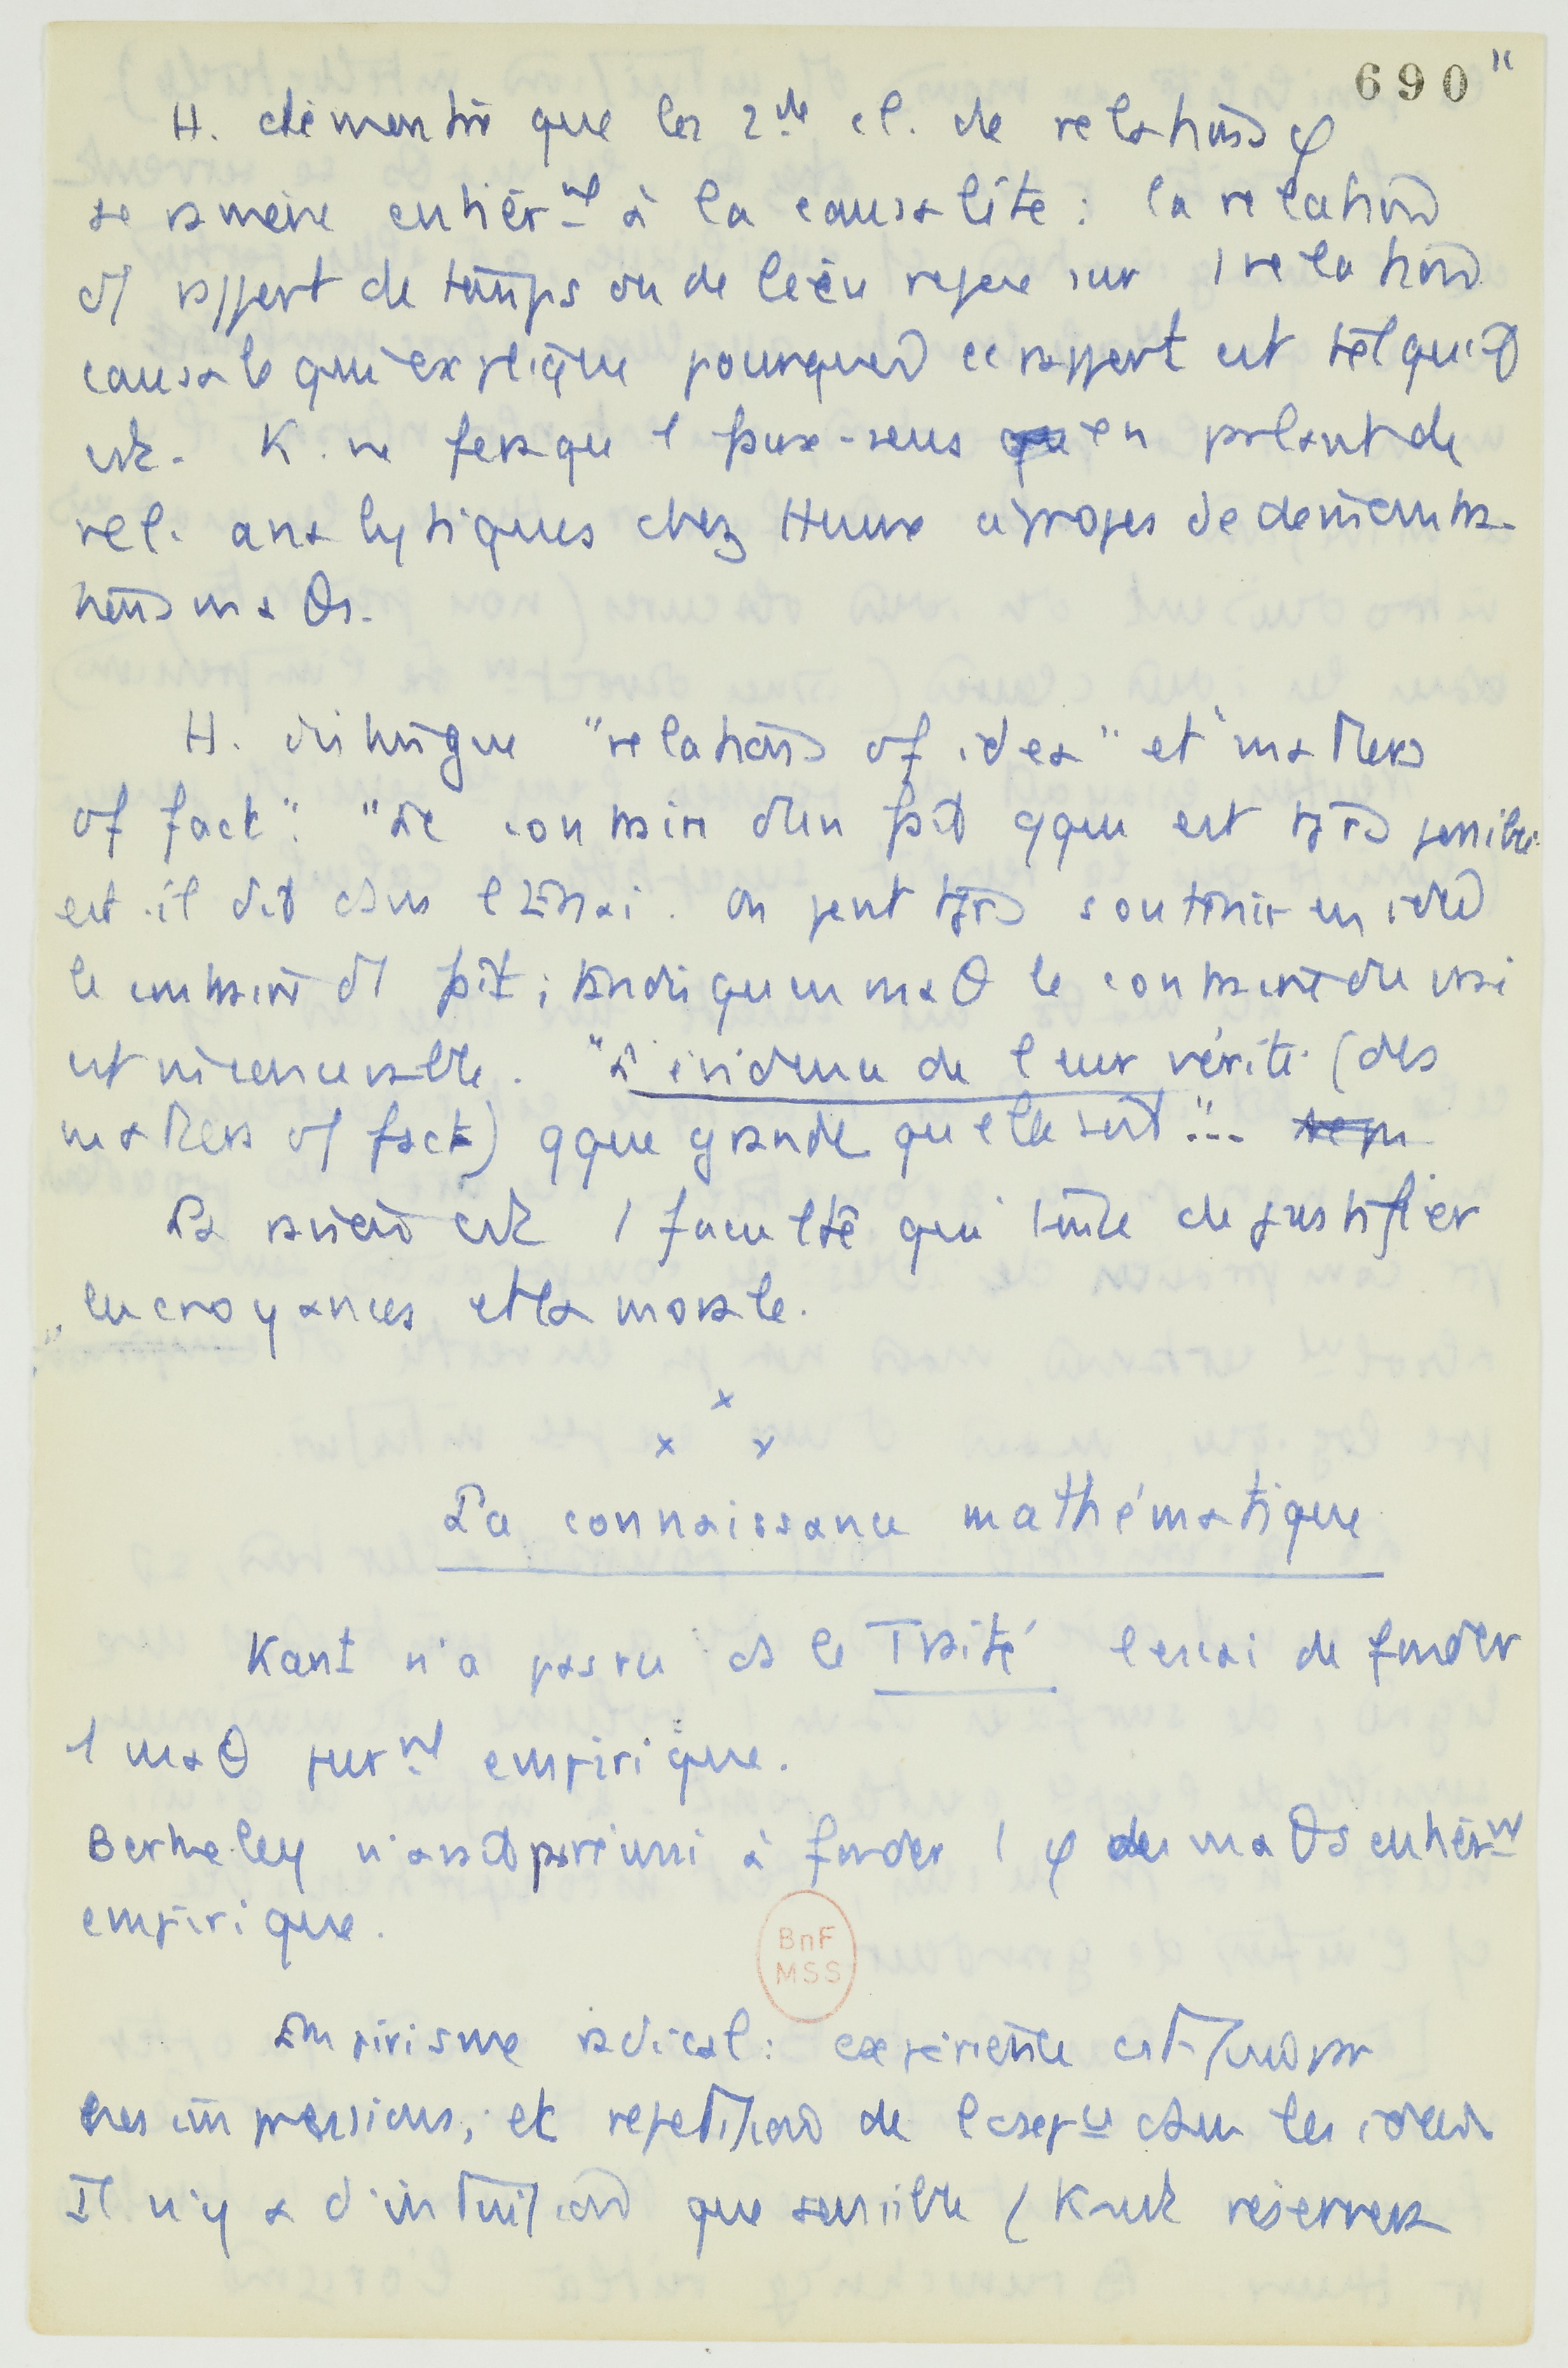 690"
H. démontre que les 2de cl. de relations φ
se ramène entièrnt à la causalité : la relation
d'1 rapport de temps ou de lieu repose sur 1 relation
causale qui explique pourquoi ce rapport est tel qu'il
est. K. ne fera que 1 faux-sens en parlant de
rel. analytiques chez Hume à propos de démonstra-
tions maθs.
H. distingue "relations of idea" et "matters
of fact" : "Le contraire d'un fait qque est tjrs possible"
est-il dit dans l'Essai. On peut tjrs soutenir en idée
le contraire d'1 fait ; tandis qu'en maθ le contraire du vrai
est inconcevable. "L'évidence de leur vérité (des
matters of fact) qque grande qu'elle soit"...
La raison est 1 faculté qui tente de justifier
les croyances et la morale.
x
x x
La connaissance mathématique
Kant n'a pas vu ds le Traité l'essai de fonder
1 maθ purnt empirique.
Berkeley n'avait pas réussi à fonder 1 φ des maθs entièrnt
empirique.
BnF
MSS
Empirisme radical : expérience est / par
les impressions, et répétition de l'exp dans les idées
Il n'y a d'intuition que sensible (Kant réservera